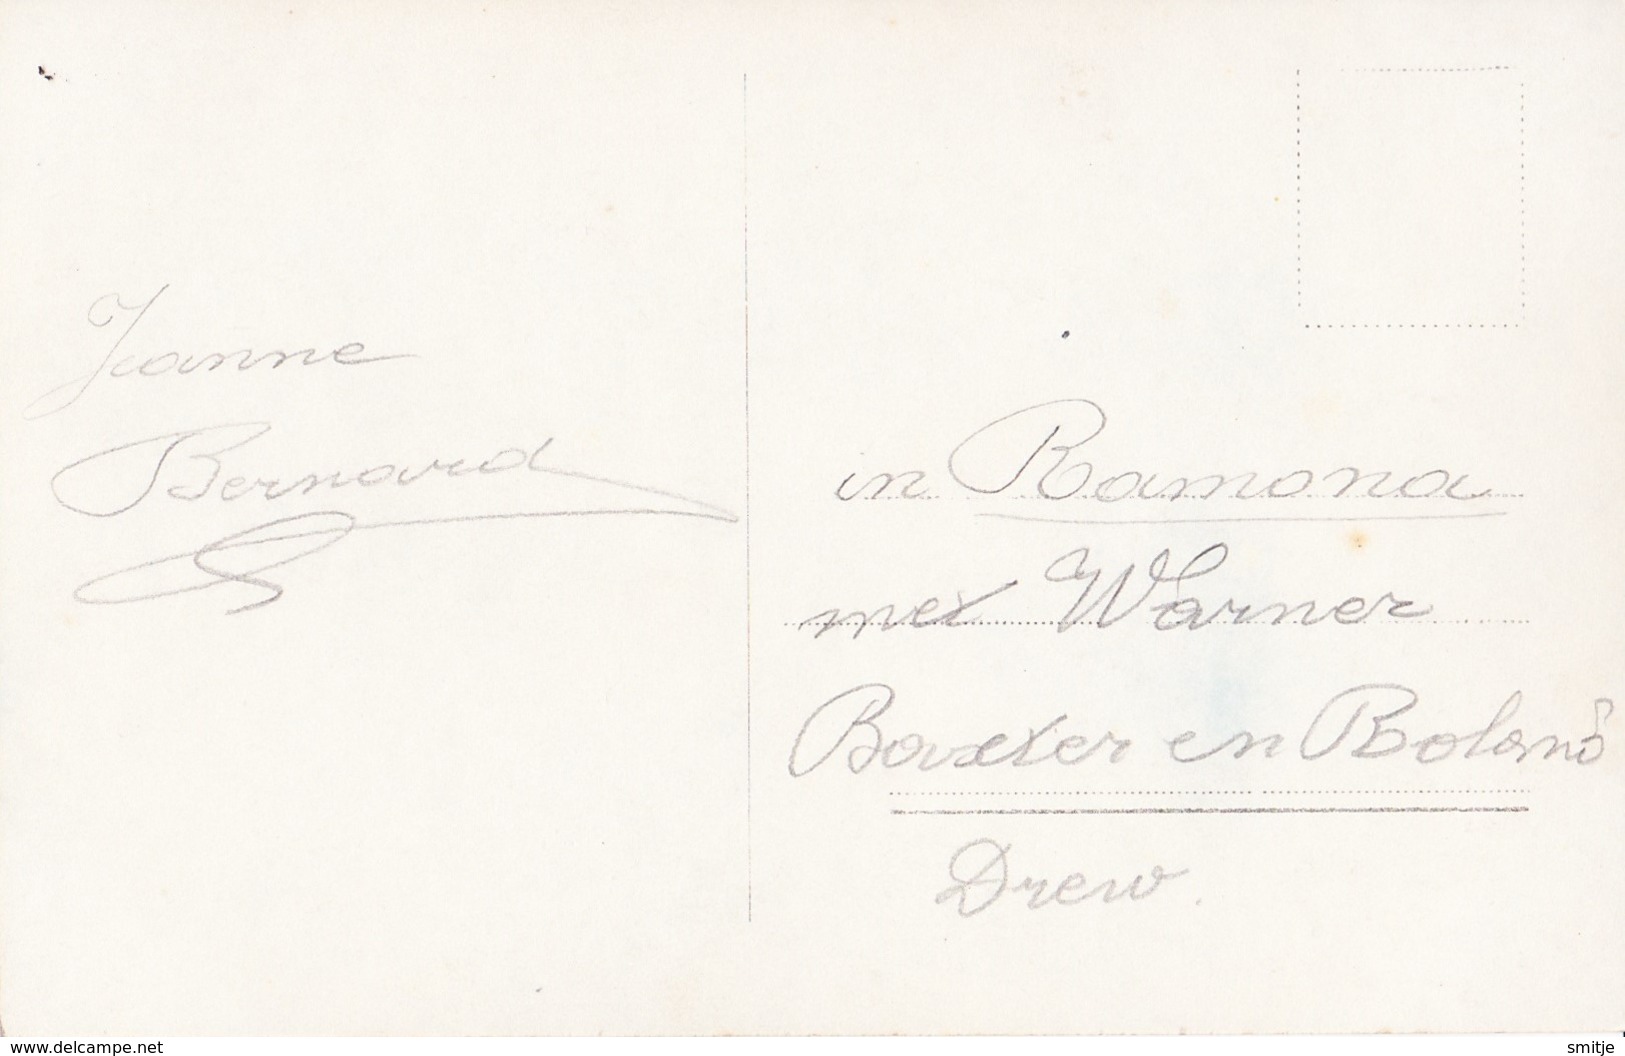 Jeanne
Bernard
in Ramona
met Warner
Baxter en Roland
Drew.
www.delcampe.net
smitje